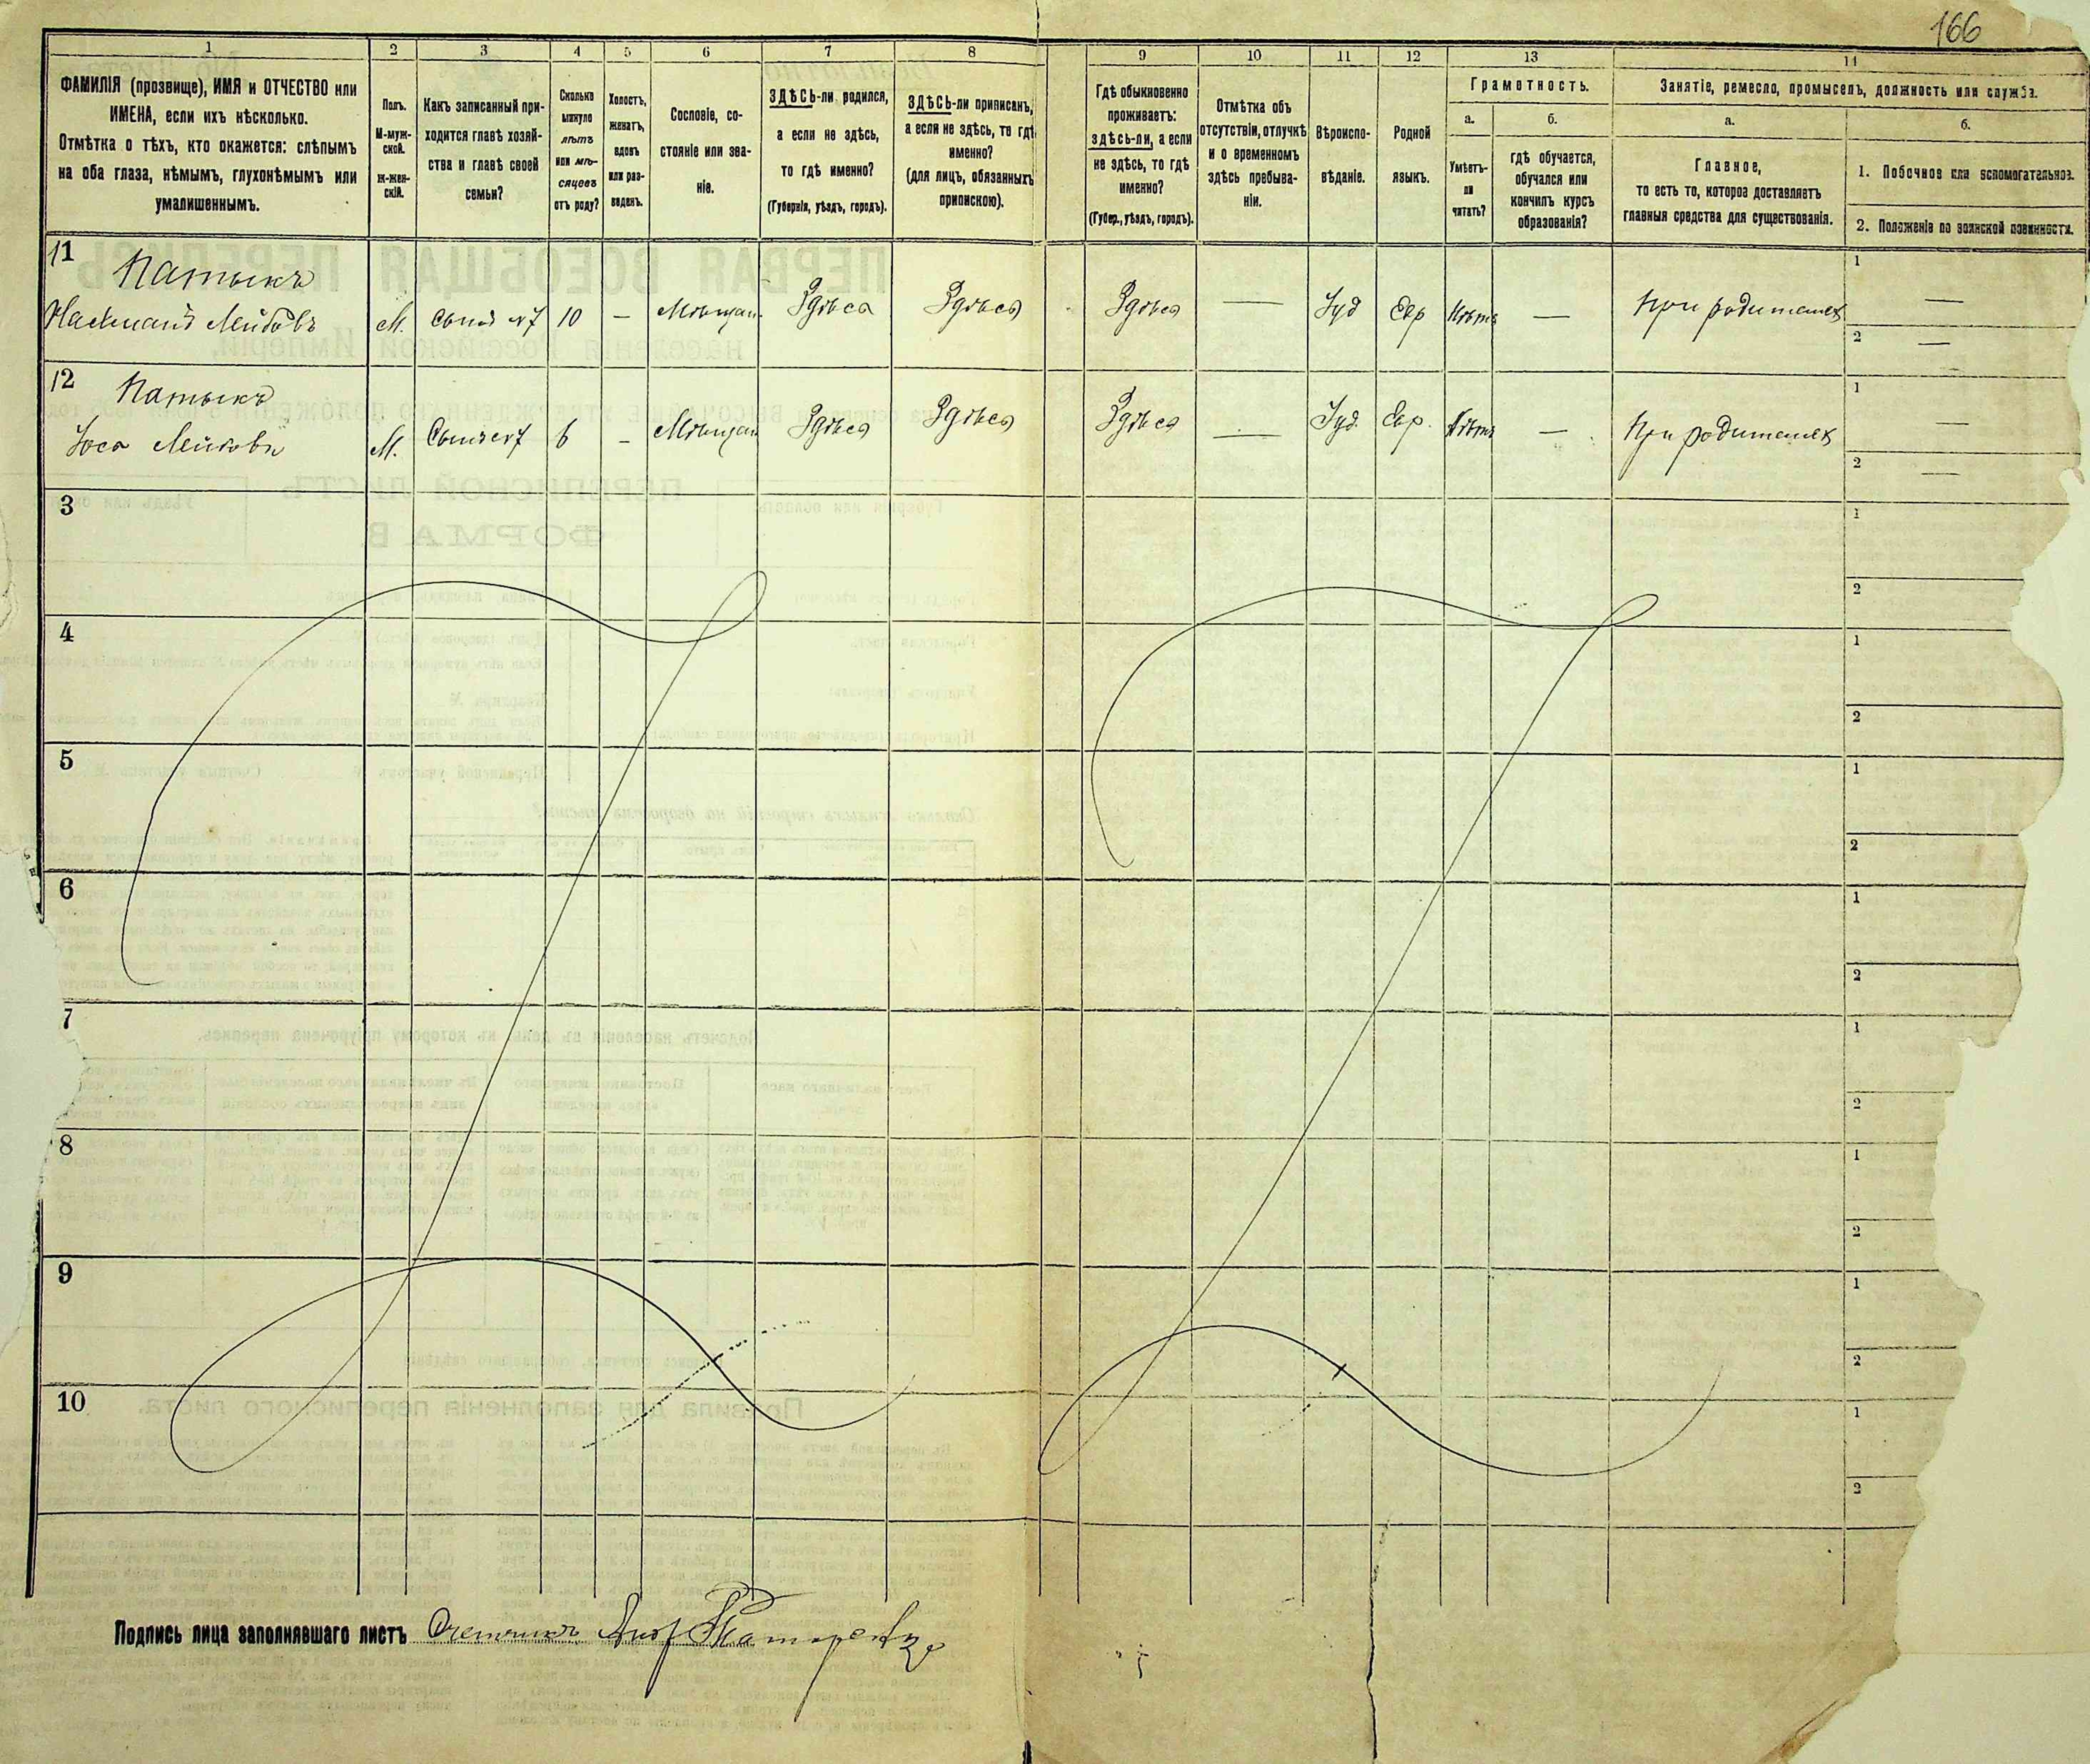 166
1
2
3
4
5
6
7
8
9
10
11
12
13
14
ФАМИЛІЯ (прозвище), ИМЯ и ОТЧЕСТВО или
ИМЕНА, если ихъ нѣсколько.
Отмѣтка о тѣхъ, кто окажется: слѣпымъ
на оба глаза, нѣмымъ, глухонѣмымъ или
умалишеннымъ.
Полъ.
М-муж-
ской.
Ж-жен-
скій.
Какъ записанный при-
ходится главѣ хозяй-
ства и главѣ своей
семьи?
Сколько
минуло
лѣтъ
или мѣ-
сяцевъ
отъ роду?
Холостъ,
женатъ,
вдовъ
или раз-
веденъ.
Сословіе, со-
стояніе или зва-
ніе.
ЗДѢСЬ-ли родился,
а если не здѣсь,
то гдѣ именно?
(Губернія, уѣздъ, городъ).
ЗДѢСЬ-ли приписанъ,
а если не здѣсь, то гдѣ
именно?
(для лицъ, обязанныхъ
припискою).
Гдѣ обыкновенно
проживаетъ:
здѣсь-ли, а если
не здѣсь, то гдѣ
именно?
(Губер., уѣздъ, городъ).
Отмѣтка объ
отсутствіи, отлучкѣ
и о временномъ
здѣсь пребыва-
ніи.
Вѣроиспо-
вѣданіе.
Родной
языкъ.
Грамотность.
а.
Умѣетъ-
ли
читать?
б.
гдѣ обучается,
обучался или
кончилъ курсъ
образованія?
Занятіе, ремесло, промыселъ, должность или служба.
а.
Главное,
то есть то, которое доставляетъ
главныя средства для существованія.
б.
1. Побочное или вспомогательное.
2. Положеніе по воинской повинности.
11 Патыкъ
Нахманъ Лейбовъ М. Сынъ №7 10 — Мѣщан. Здѣсь Здѣсь Здѣсь — Іуд Евр Нѣтъ — При родителях 1 —
2 —
12 Патыкъ
Лейбовъ М. Сынъ №7 6 — Мѣщан Здѣсь Здѣсь Здѣсь — Іуд. Евр. Нѣтъ — При родителях 1 —
2 —
3 1
2
4 1
2
5 1
2
6 1
2
7 1
2
8 1
2
9 1
2
10 1
2
Подпись лица заполнявшаго листъ Счетчикъ